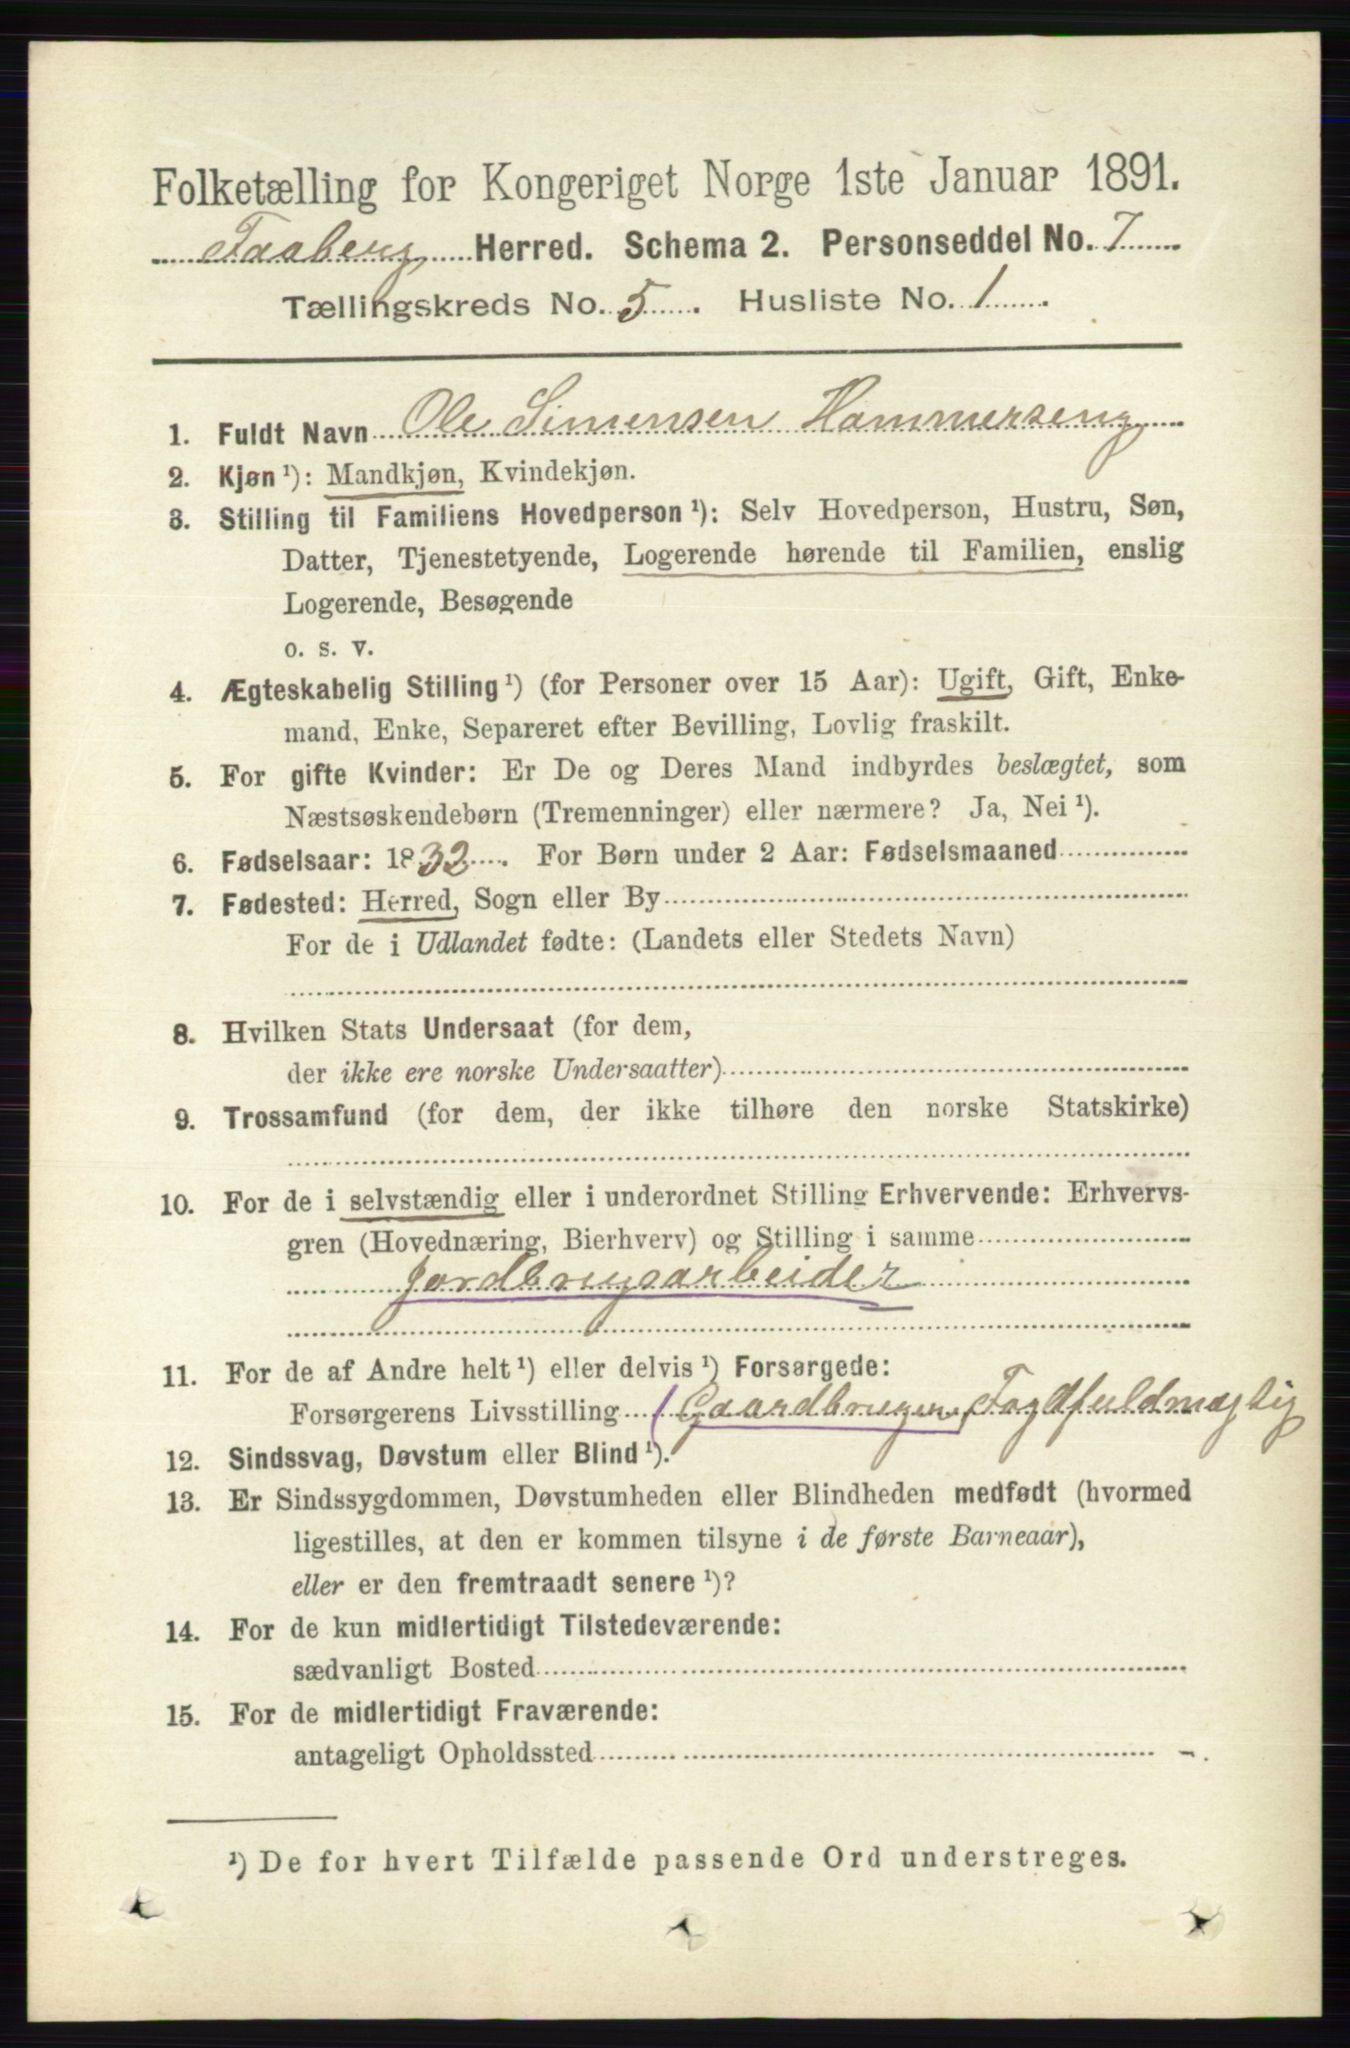 Folketælling for Kongeriget Norge 1ste Januar 1891.
Faaberg Herred. Schema 2. Personseddel No. 7
Tællingskreds No. 5. Husliste No. 1.
1. Fuldt Navn Ole Simensen Hammerseng
2. Kjøn ¹): Mandkjøn, Kvindekjøn.
3. Stilling til Familiens Hovedperson ¹): Selv Hovedperson, Hustru, Søn,
Datter, Tjenestetyende, Logerende hørende til Familien, enslig
Logerende, Besøgende
o. s. v.
4. Ægteskabelig Stilling ¹) (for Personer over 15 Aar): Ugift, Gift, Enke-
mand, Enke, Separeret efter Bevilling, Lovlig fraskilt.
5. For gifte Kvinder: Er De og Deres Mand indbyrdes beslægtet, som
Næstsøskendebørn (Tremenninger) eller nærmere? Ja, Nei ¹).
6. Fødselsaar: 1832. For Børn under 2 Aar: Fødselsmaaned
7. Fødested: Herred, Sogn eller By
For de i Udlandet fødte: (Landets eller Stedets Navn)
8. Hvilken Stats Undersaat (for dem,
der ikke ere norske Undersaatter)
9. Trossamfund (for dem, der ikke tilhøre den norske Statskirke)
10. For de i selvstændig eller i underordnet Stilling Erhvervende: Erhvervs-
gren (Hovednæring, Bierhverv) og Stilling i samme
Jordbrugsarbeider
11. For de af Andre helt ¹) eller delvis ¹) Forsørgede:
Forsørgerens Livsstilling (Gaardbruger, Fogdfuldmægtig
12. Sindssvag, Døvstum eller Blind ¹).
13. Er Sindssygdommen, Døvstumheden eller Blindheden medfødt (hvormed
ligestilles, at den er kommen tilsyne i de første Barneaar),
eller er den fremtraadt senere ¹)?
14. For de kun midlertidigt Tilstedeværende:
sædvanligt Bosted
15. For de midlertidigt Fraværende:
antageligt Opholdssted
¹) De for hvert Tilfælde passende Ord understreges.